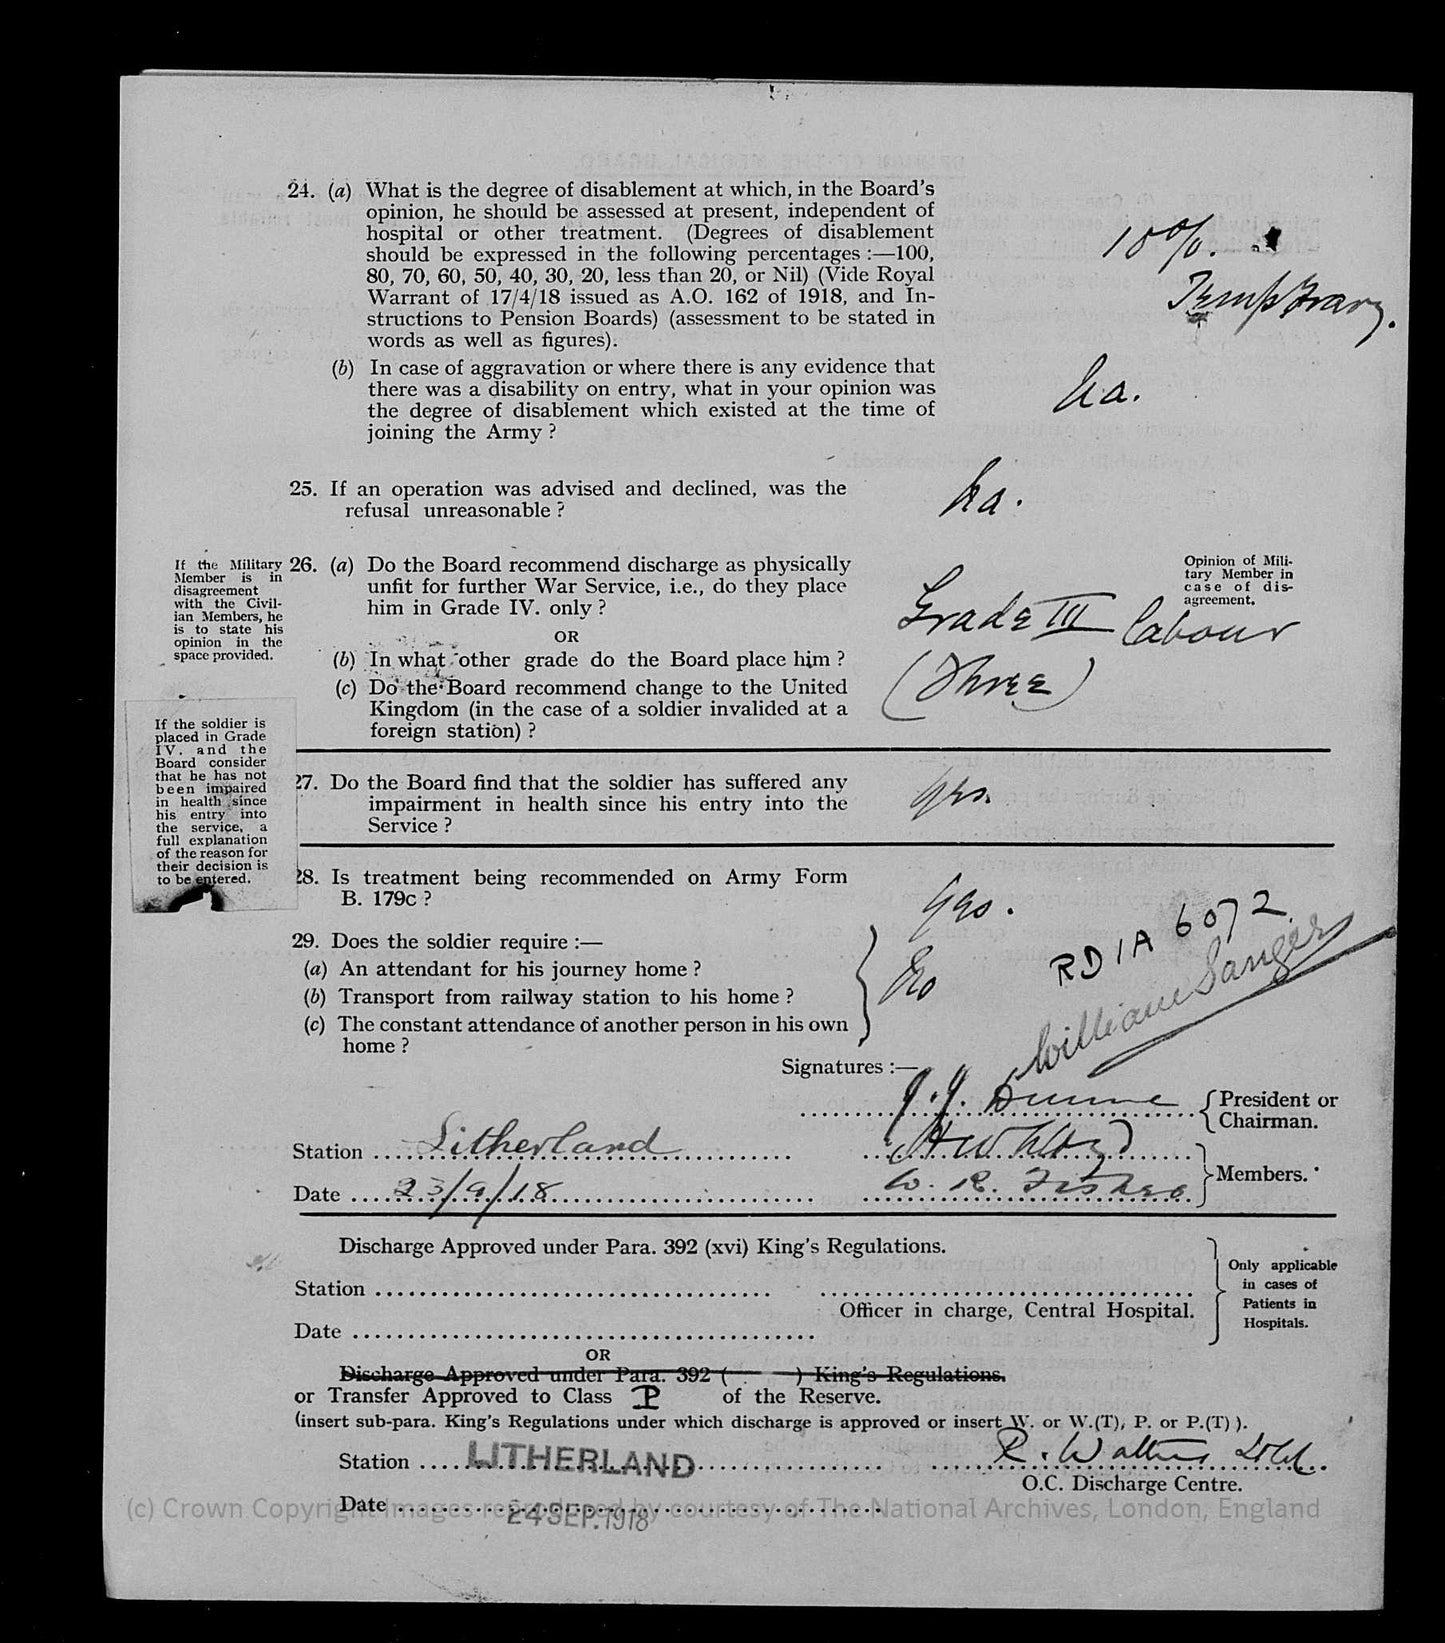 24. (a) What is the degree of disablement at which, in the Board's
opinion, he should be assessed at present, independent of
hospital or other treatment. (Degrees of disablement
should be expressed in the following percentages :—100,
80, 70, 60, 50, 40, 30, 20, less than 20, or Nil) (Vide Royal
Warrant of 17/4/18 issued as A.O. 162 of 1918, and In-
structions to Pension Boards) (assessment to be stated in
words as well as figures).
10%.
Temporary.
(b) In case of aggravation or where there is any evidence that
there was a disability on entry, what in your opinion was
the degree of disablement which existed at the time of
joining the Army ?
na.
25. If an operation was advised and declined, was the
refusal unreasonable ?
na.
If the Military
Member is in
disagreement
with the Civil-
ian Members, he
is to state his
opinion in the
space provided.
26. (a) Do the Board recommend discharge as physically
unfit for further War Service, i.e., do they place
him in Grade IV. only ?
OR
(b) In what other grade do the Board place him ?
(c) Do the Board recommend change to the United
Kingdom (in the case of a soldier invalided at a
foreign station) ?
Opinion of Mili-
tary Member in
case of dis-
agreement.
Grade III labour
(Three)
If the soldier is
placed in Grade
IV. and the
Board consider
that he has not
been impaired
in health since
his entry into
the service, a
full explanation
of the reason for
their decision is
to be entered.
27. Do the Board find that the soldier has suffered any
impairment in health since his entry into the
Service ?
yes.
28. Is treatment being recommended on Army Form
B. 179c ?
yes.
29. Does the soldier require :—
(a) An attendant for his journey home ?
(b) Transport from railway station to his home ?
(c) The constant attendance of another person in his own
home ?
No
RD1A 6072
William Sanger
Signatures :—
J.J. Dunne
President or
Chairman.
Station Litherland
Date 23/9/18
W. R.
Members.
Discharge Approved under Para. 392 (xvi) King's Regulations.
Station
Officer in charge, Central Hospital.
Date
Only applicable
in cases of
Patients in
Hospitals.
OR
Discharge Approved under Para. 392 ( ) King's Regulations.
or Transfer Approved to Class P of the Reserve.
(insert sub-para. King's Regulations under which discharge is approved or insert W. or W.(T), P. or P.(T) ).
Station LITHERLAND
R. Walters
O.C. Discharge Centre.
Date 24 SEP. 1918
(c) Crown Copyright Images reproduced by courtesy of The National Archives, London, England